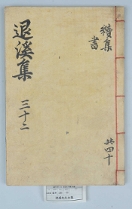 續集
書
退溪集
三十二
共四十